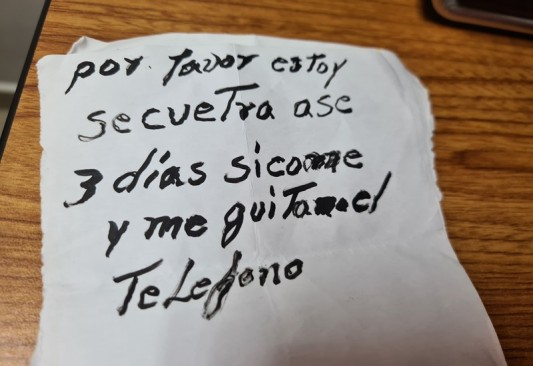 por. favor estoy
secueTra ase
3 días sicome
y me quiTan el
TeLefono